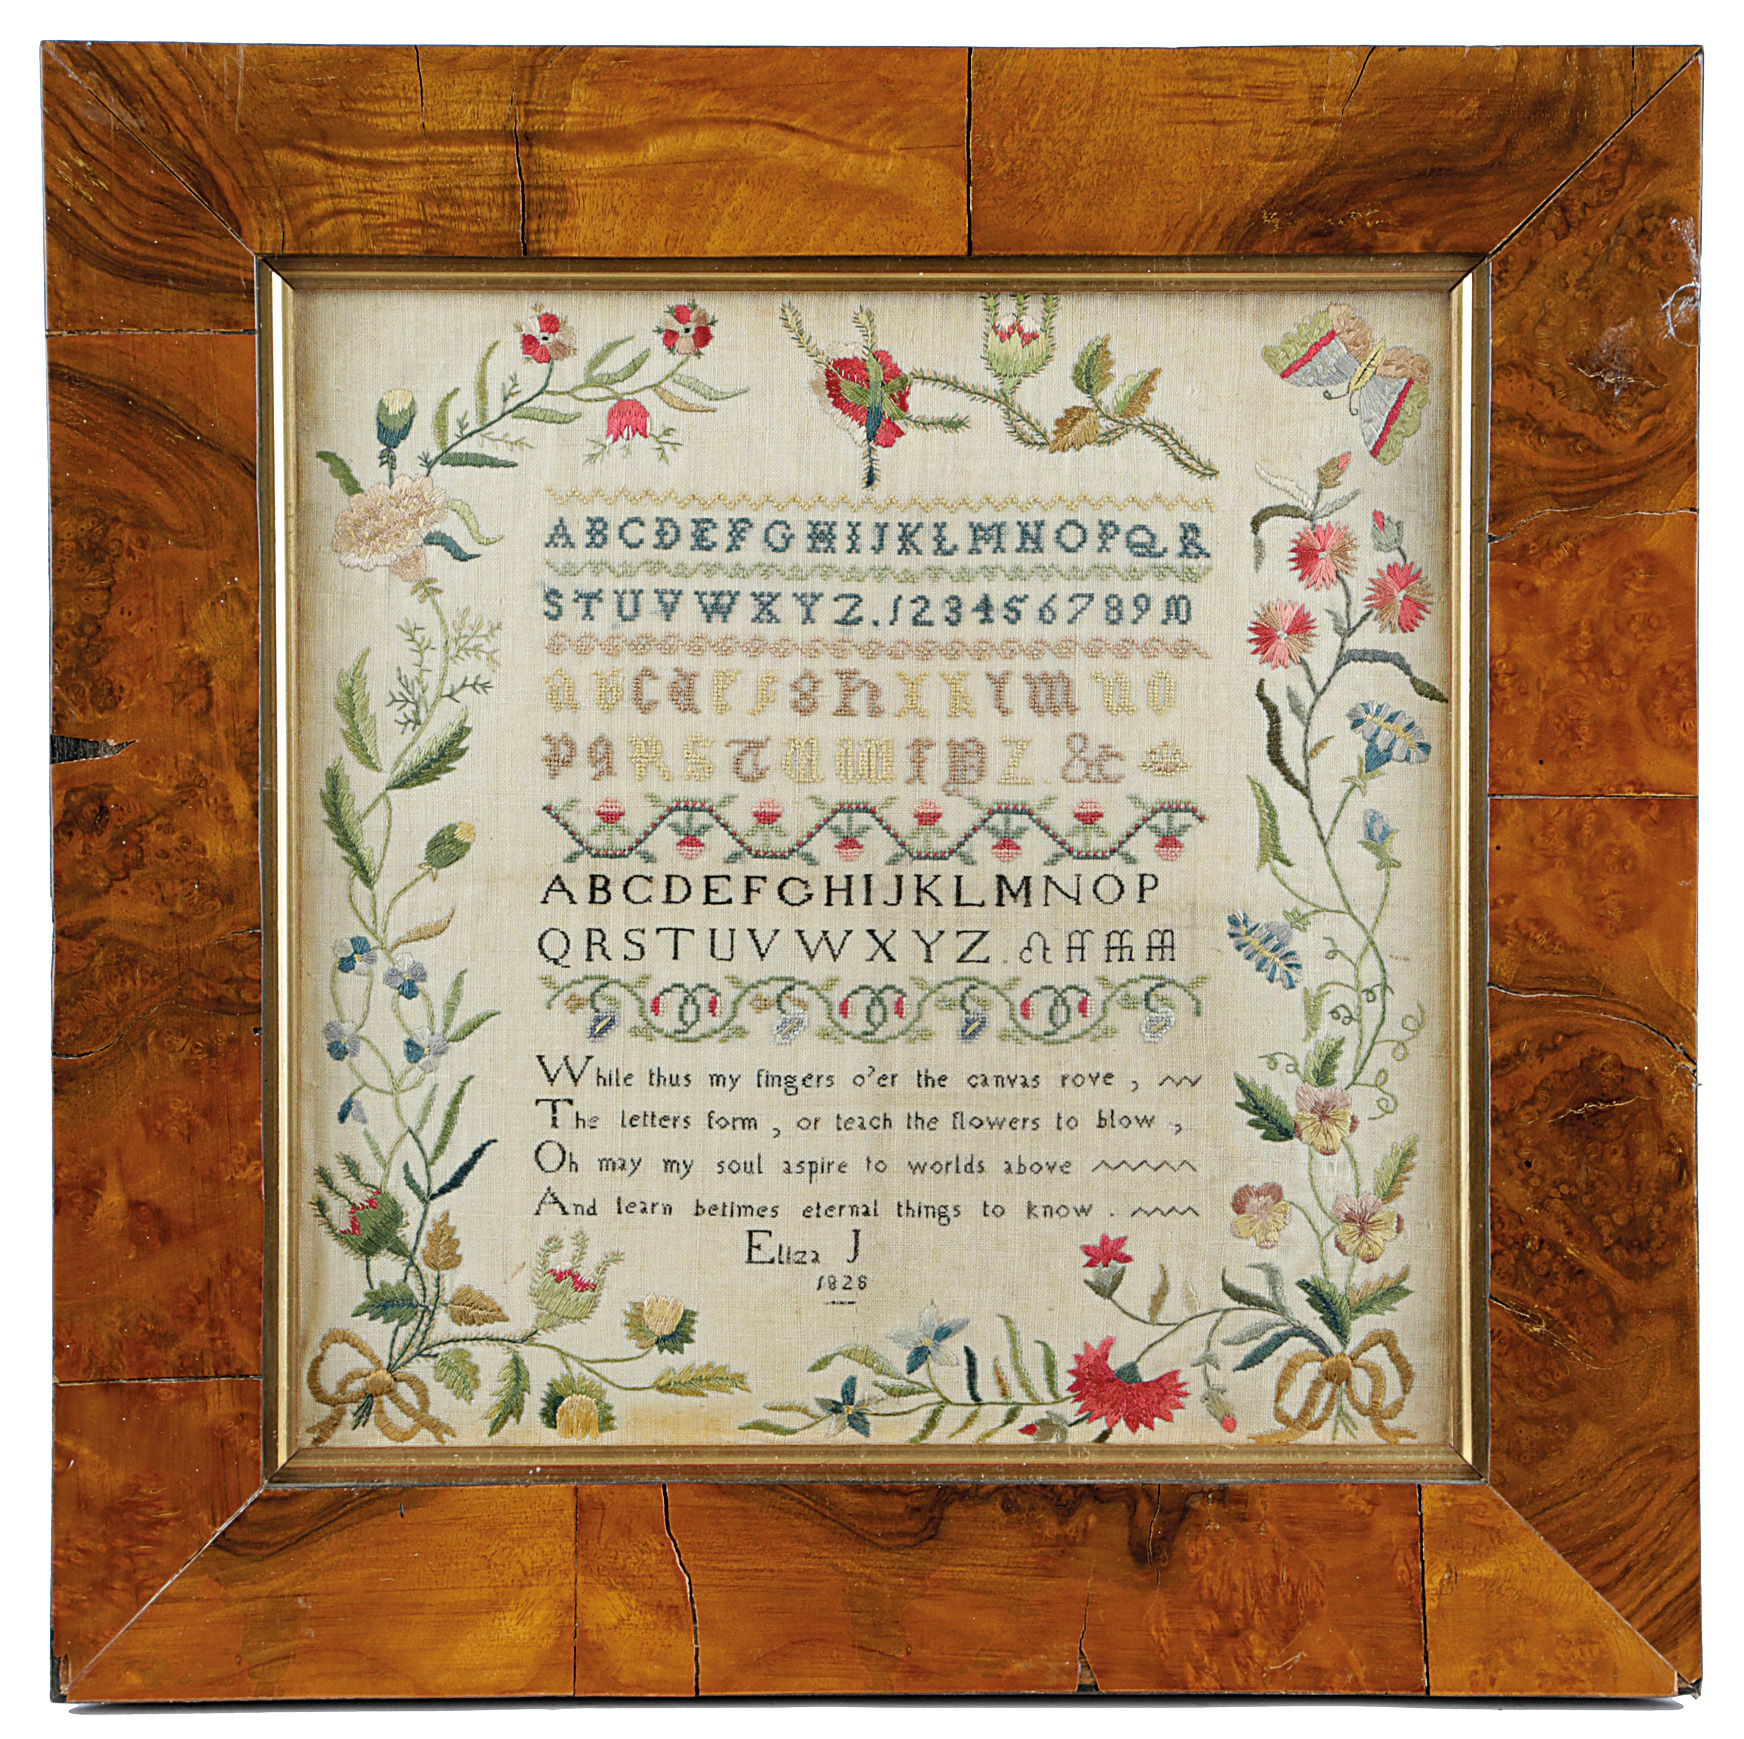 ABCDEFGHIJKLMNOPQR
STUVWXYZ.12345678910
abcdefghiklmno
pqrstuwxyz.&c
ABCDEFGHIJKLMNOP
QRSTUVWXYZ.ct ff ffi ffl
While thus my fingers o'er the canvas rove,
The letters form, or teach the flowers to blow,
Oh may my soul aspire to worlds above
And learn betimes eternal things to know.
Eliza J
1828